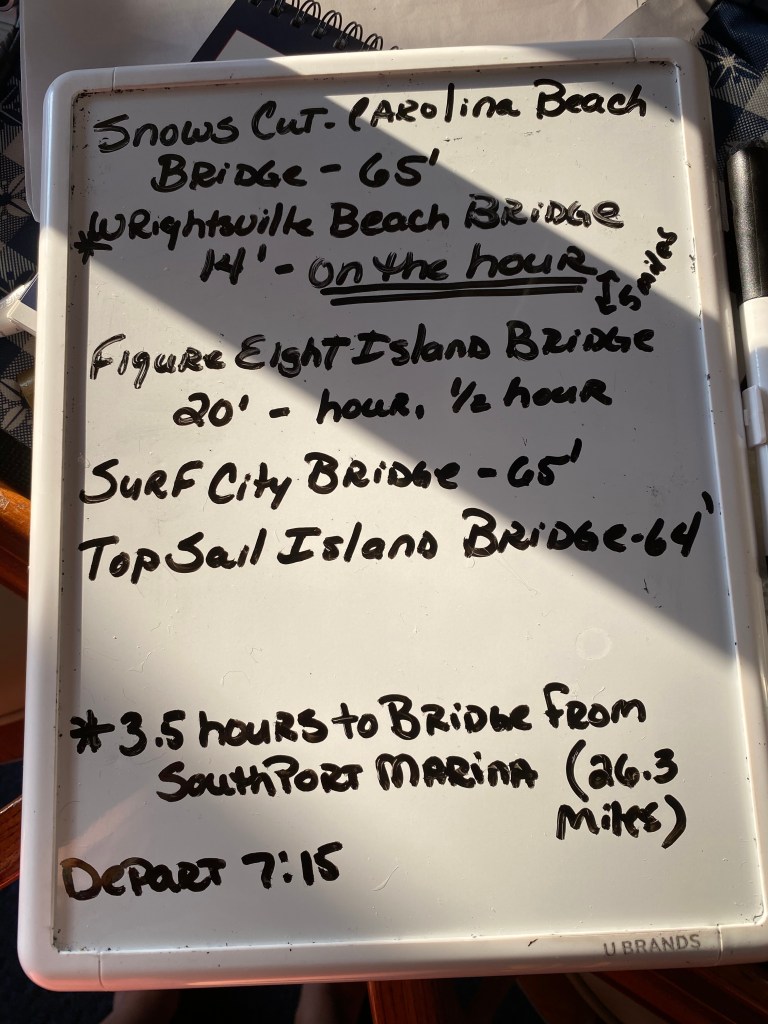 Snows Cut - Carolina Beach
Bridge - 65'
*Wrightsville Beach Bridge
14' - on the hour
5 miles
Figure Eight Island Bridge
20' - hour, 1/2 hour
Surf City Bridge - 65'
TopSail Island Bridge - 64'
* 3.5 hours to Bridge from
SouthPort Marina (26.3
miles)
Depart 7:15
U BRANDS